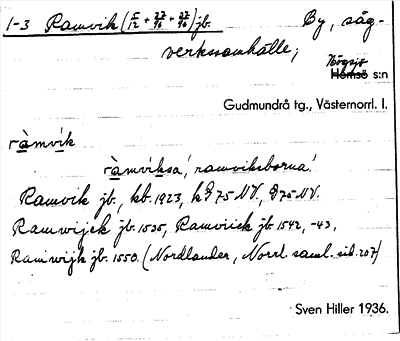 1-3 Ramvik (5/12 + 27/96 + 27/96) jb. By, såg-
verkssamhälle;
Högsjö
Hemsö s:n
Gudmundrå tg., Västernorrl. l.
ràmvík
ràmvíksa', ramviksborna'.
Ramvik jb., kb. 1923, k 75 NV., 75 NV.
Ramwijck jb. 1535, Ramvick jb. 1542, -43,
Ramwijk jb. 1550. (Nordlander, Norrl. saml. sid. 207)
Sven Hiller 1936.